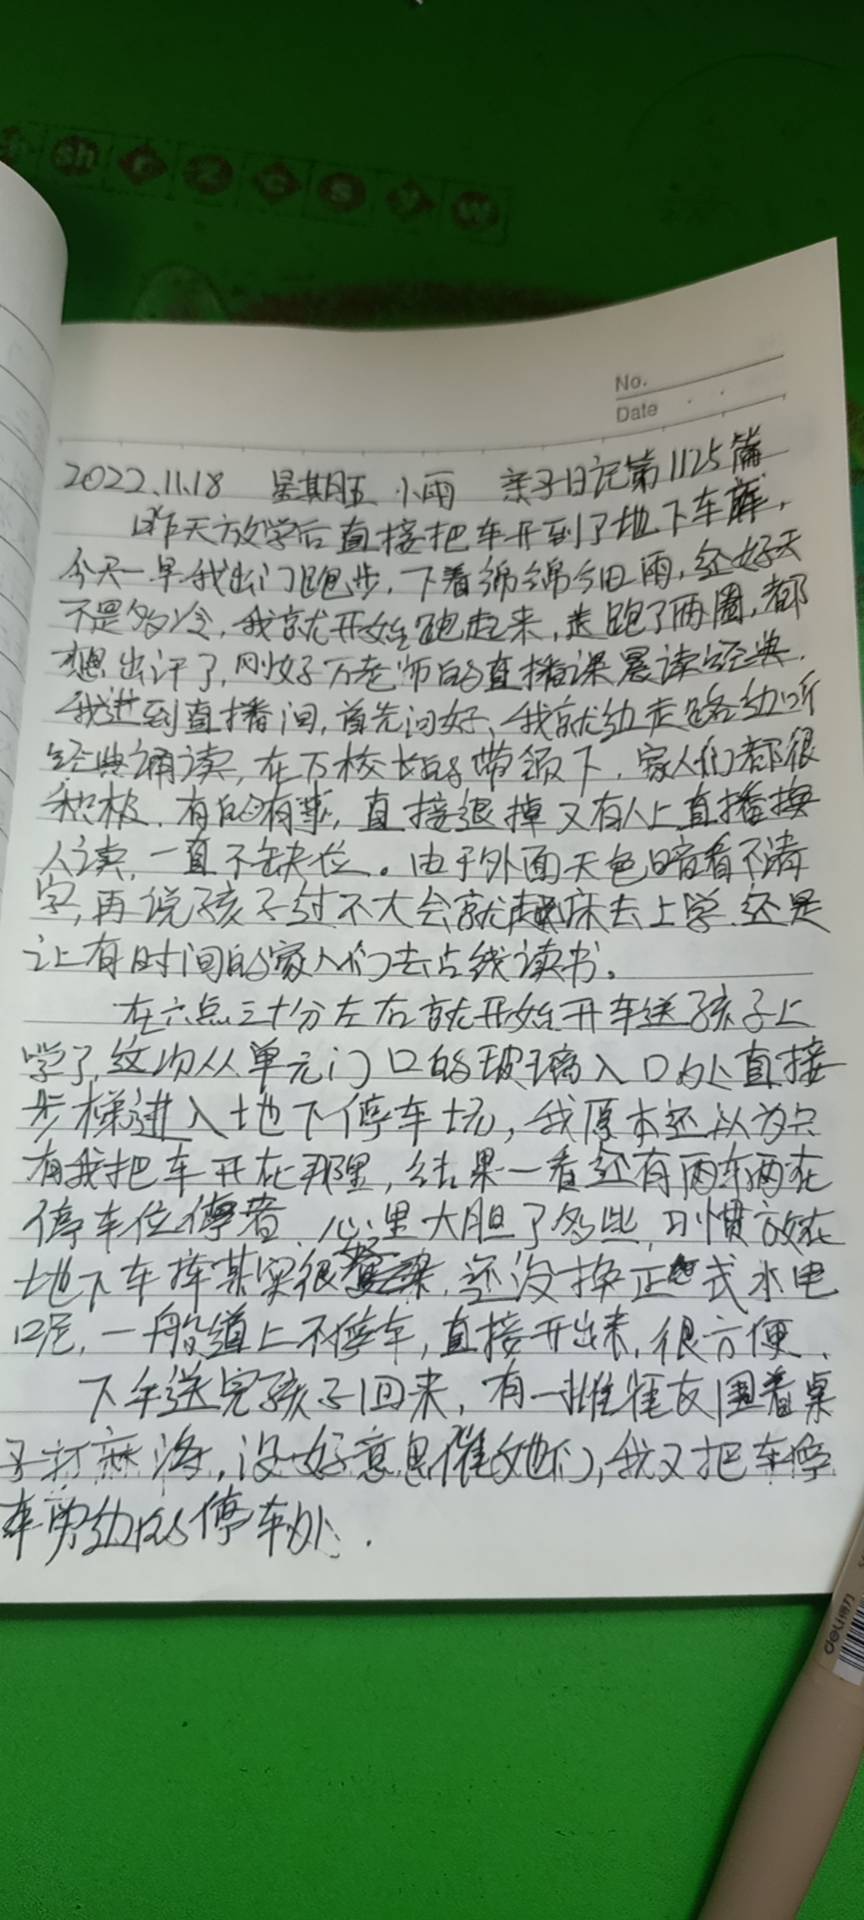 sh r z c s y w
No.
Date
2022.11.18 星期五 小雨 亲子日记第1125篇
昨天放学后直接把车开到了地下车库,
今天一早我出门跑步,下着绵绵细雨,还好天
不是多冷,我就开始跑起来,跑了两圈,都
想出汗了,刚好万老师的直播课晨读经典.
我进到直播间,首先问好、我就边走路边听
经典诵读,在万校长的带领下,家人们都很
积极.有的有事,直接退掉又有人上直播换
人读,一直不缺位。由于外面天色暗看不清
字,再说孩子过不大会就起床去上学.还是
让有时间的家人们去占线读书。
在六点三十分左右就开始开车送孩子上
学了,这次从单元门口的玻璃入口处直接
步梯进入地下停车场,我原本还以为只
有我把车开在那里,结果一看还有两车辆在
停车位停着.心里大胆了多些.习惯放在
地下车库其实很.还没掉正式水电
呢,一般道上不停车,直接开出来,很方便.
下午送完孩子回来,有一堆牌友围着桌
子打麻将,没好意思催她们,我又把车停
在旁边的停车处.
deli得力